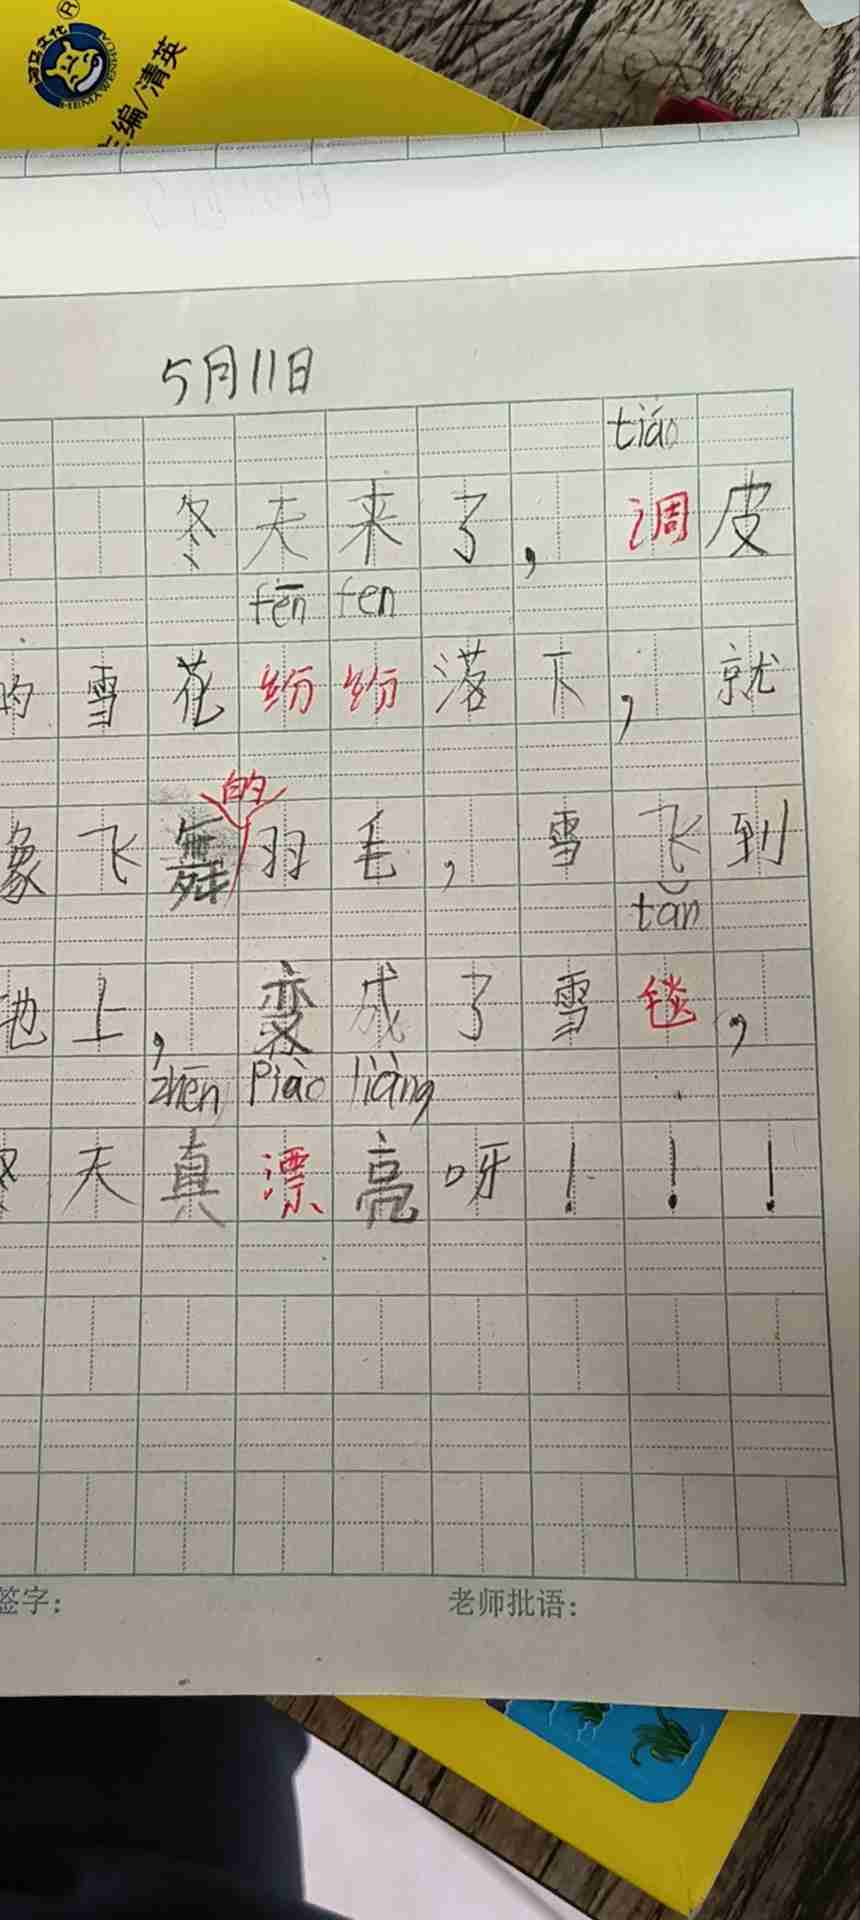 河马文化®
HEMAWENHUA
主编/清英
5月11日
tiáo
冬天来了，调皮
fēn fen
的雪花纷纷落下，就
的
象飞舞羽毛，雪飞到
tǎn
地上，变成了雪毯，
zhēn piào liàng
冬天真漂亮呀！！！
签字：
老师批语：